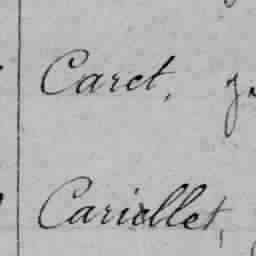 Caret,
Cariellet,